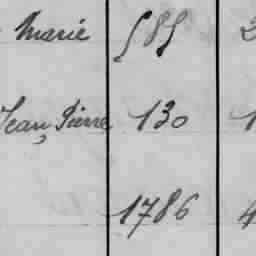 Marie 585 2
Jean Pierre 130 1
1786 4